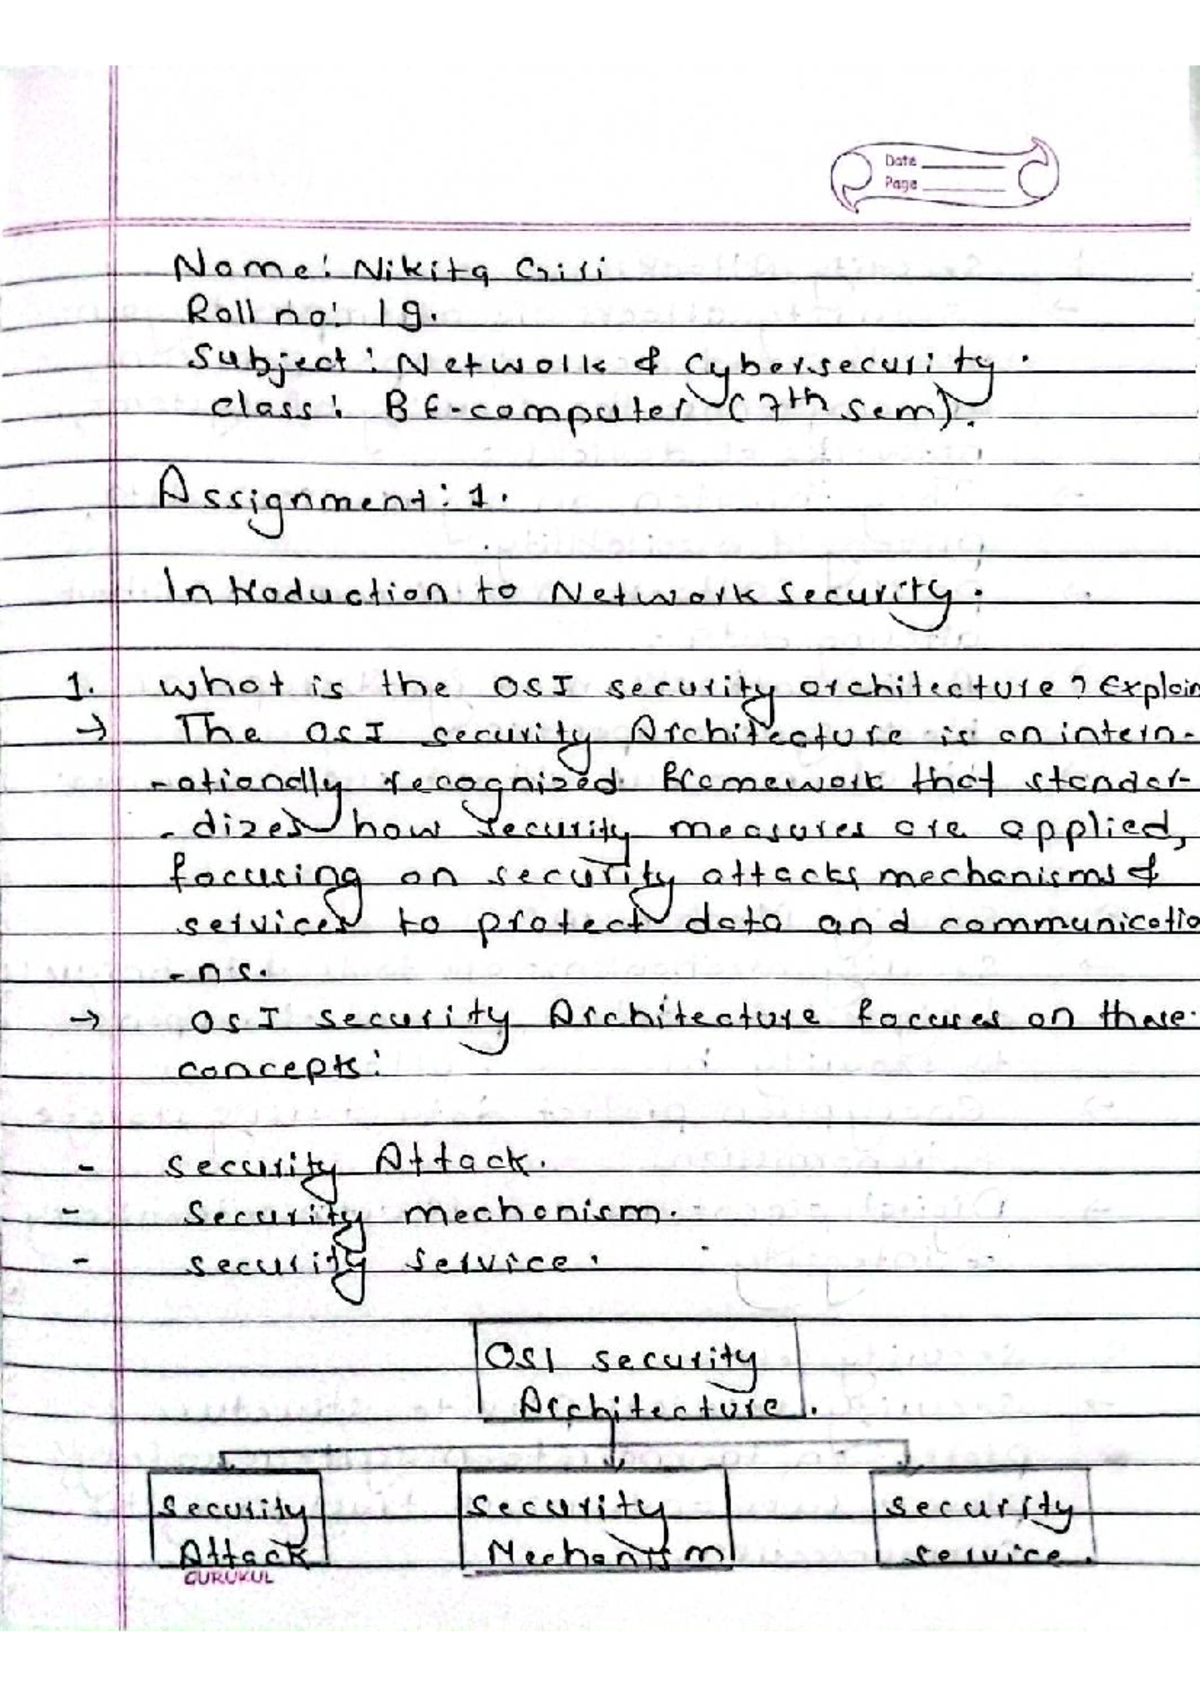 Date
Page
Name: Nikita Giri
Roll no: 19.
Subject: Network & Cybersecurity.
class: BE-computer (7th sem).
Assignment: 1.
Introduction to Network security.
1. what is the OSI security architecture? Explain
→ The OSI security Architecture is an intern-
-ationally recognized framework that standar-
-dizes how security measures are applied,
focusing on security attacks, mechanisms &
services to protect data and communicatio
-ns.
→ OSI security Architecture focuses on these
concepts:
- security Attack.
- Security mechanism.
- security service.
OSI security
Architecture.
security
Attack
security
Mechanism
security
service.
GURUKUL